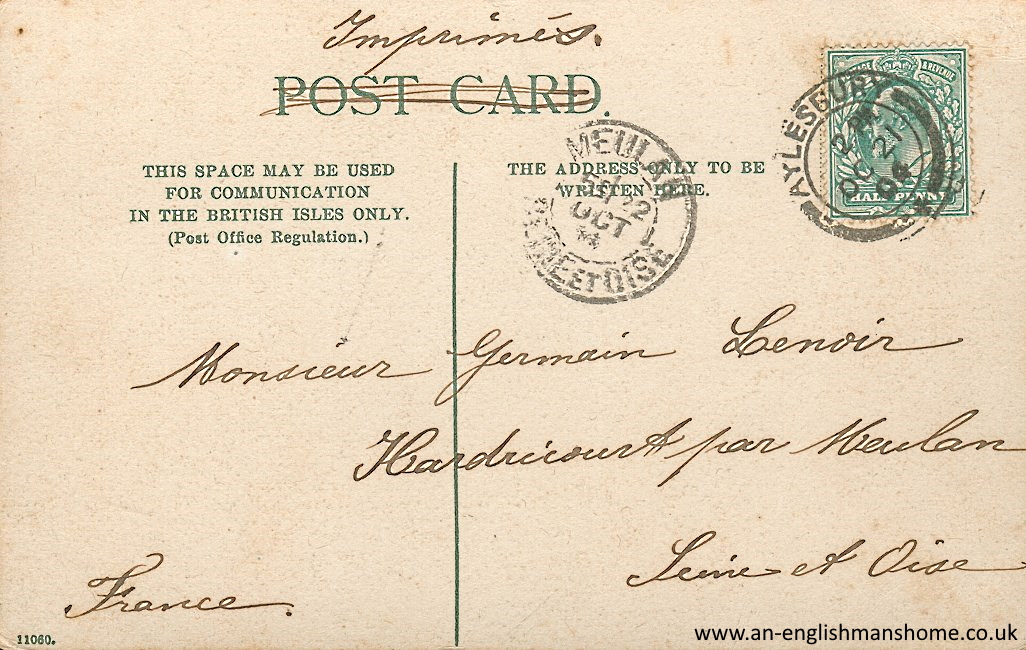 Imprimés.
POST CARD.
THIS SPACE MAY BE USED
FOR COMMUNICATION
IN THE BRITISH ISLES ONLY.
(Post Office Regulation.)
THE ADDRESS ONLY TO BE
WRITTEN HERE.
AYLESBURY
OC 21
04
& REVENUE
HALF PENNY
MEULAN
22
OCT
ET OISE
Monsieur Germain Lenoir
Hardricourt par Meulan
Seine et Oise
France.
11060.
www.an-englishmanshome.co.uk